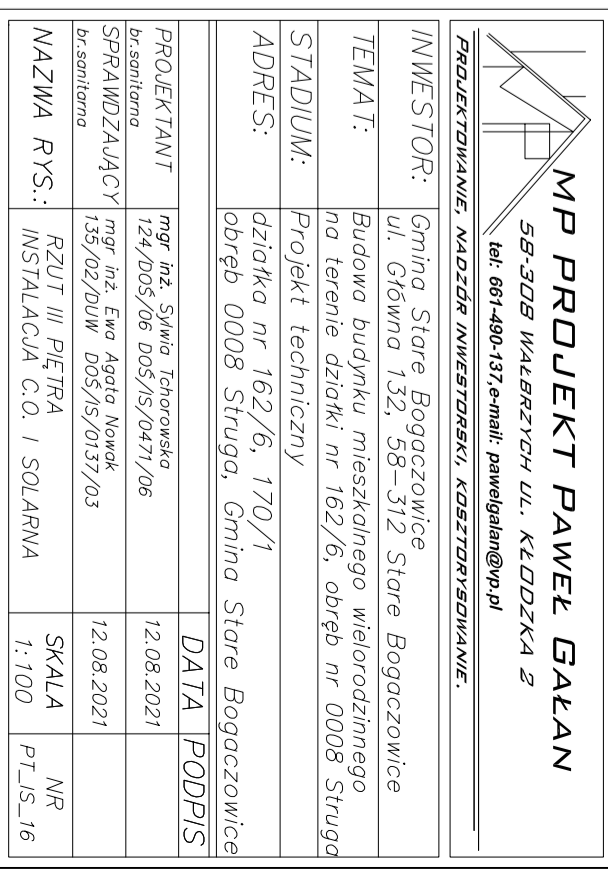 MP PROJEKT PAWEŁ GAŁAN
58-308 WAŁBRZYCH UL. KŁODZKA 2
tel: 661-490-137,e-mail: pawelgalan@vp.pl
PROJEKTOWANIE, NADZÓR INWESTORSKI, KOSZTORYSOWANIE.
INWESTOR: Gmina Stare Bogaczowice
ul. Główna 132, 58-312 Stare Bogaczowice
TEMAT: Budowa budynku mieszkalnego wielorodzinnego
na terenie działki nr 162/6, obręb nr 0008 Struga
STADIUM: Projekt techniczny
ADRES: działka nr 162/6, 170/1
obręb 0008 Struga, Gmina Stare Bogaczowice
DATA PODPIS
PROJEKTANT mgr inż. Sylwia Tchorowska 12.08.2021
br.sanitarna 124/DOŚ/06 DOŚ/IS/0471/06
SPRAWDZAJĄCY mgr inż. Ewa Agata Nowak 12.08.2021
br.sanitarna 135/02/DUW DOŚ/IS/0137/03
NAZWA RYS.: RZUT III PIĘTRA SKALA NR
INSTALACJA C.O. I SOLARNA 1:100 PT_IS_16